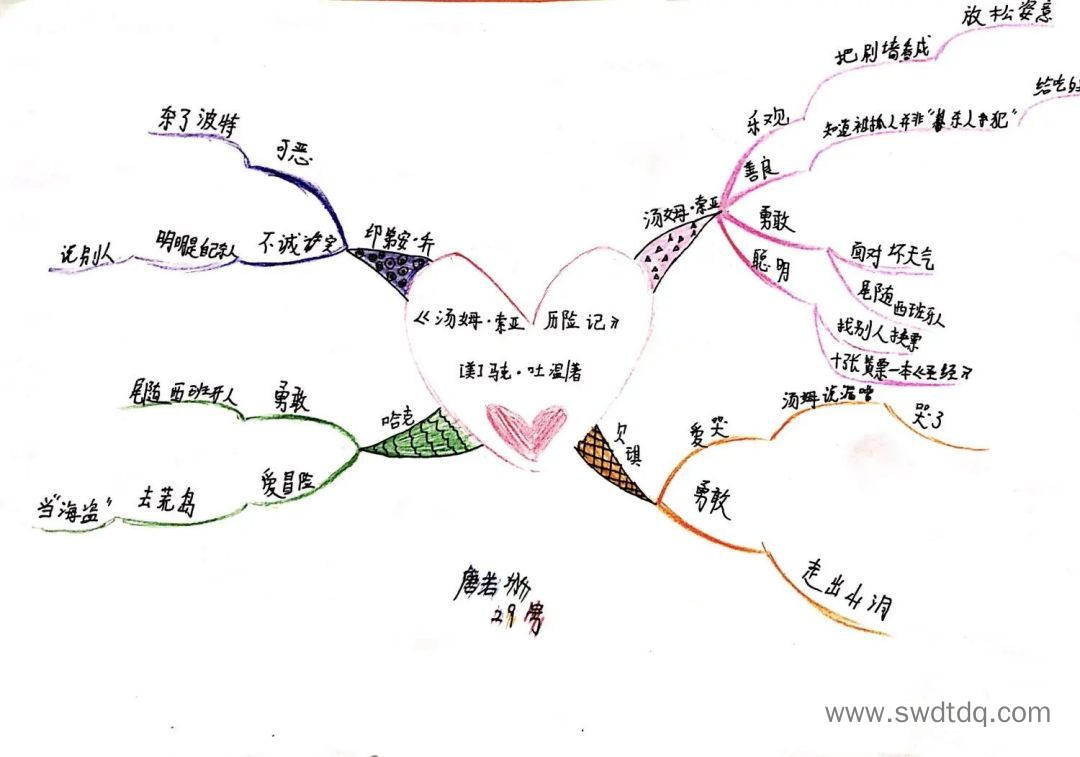 《汤姆·索亚 历险记》
[美]马克·吐温著
汤姆·索亚
乐观
把刷墙看成
放松姿意
善良
知道被抓人并非"杀人犯"
给吃的
勇敢
面对坏天气
尾随西班牙人
聪明
找别人换票
十张黄票一本《圣经》
贝琪
爱哭
汤姆说谎
哭了
勇敢
走出山洞
哈克
勇敢
尾随西班牙人
爱冒险
去荒岛
当"海盗"
印第安·乔
可恶
杀了波特
不诚实
明明是自己杀人
说别人
唐若
29号
www.swdtdq.com